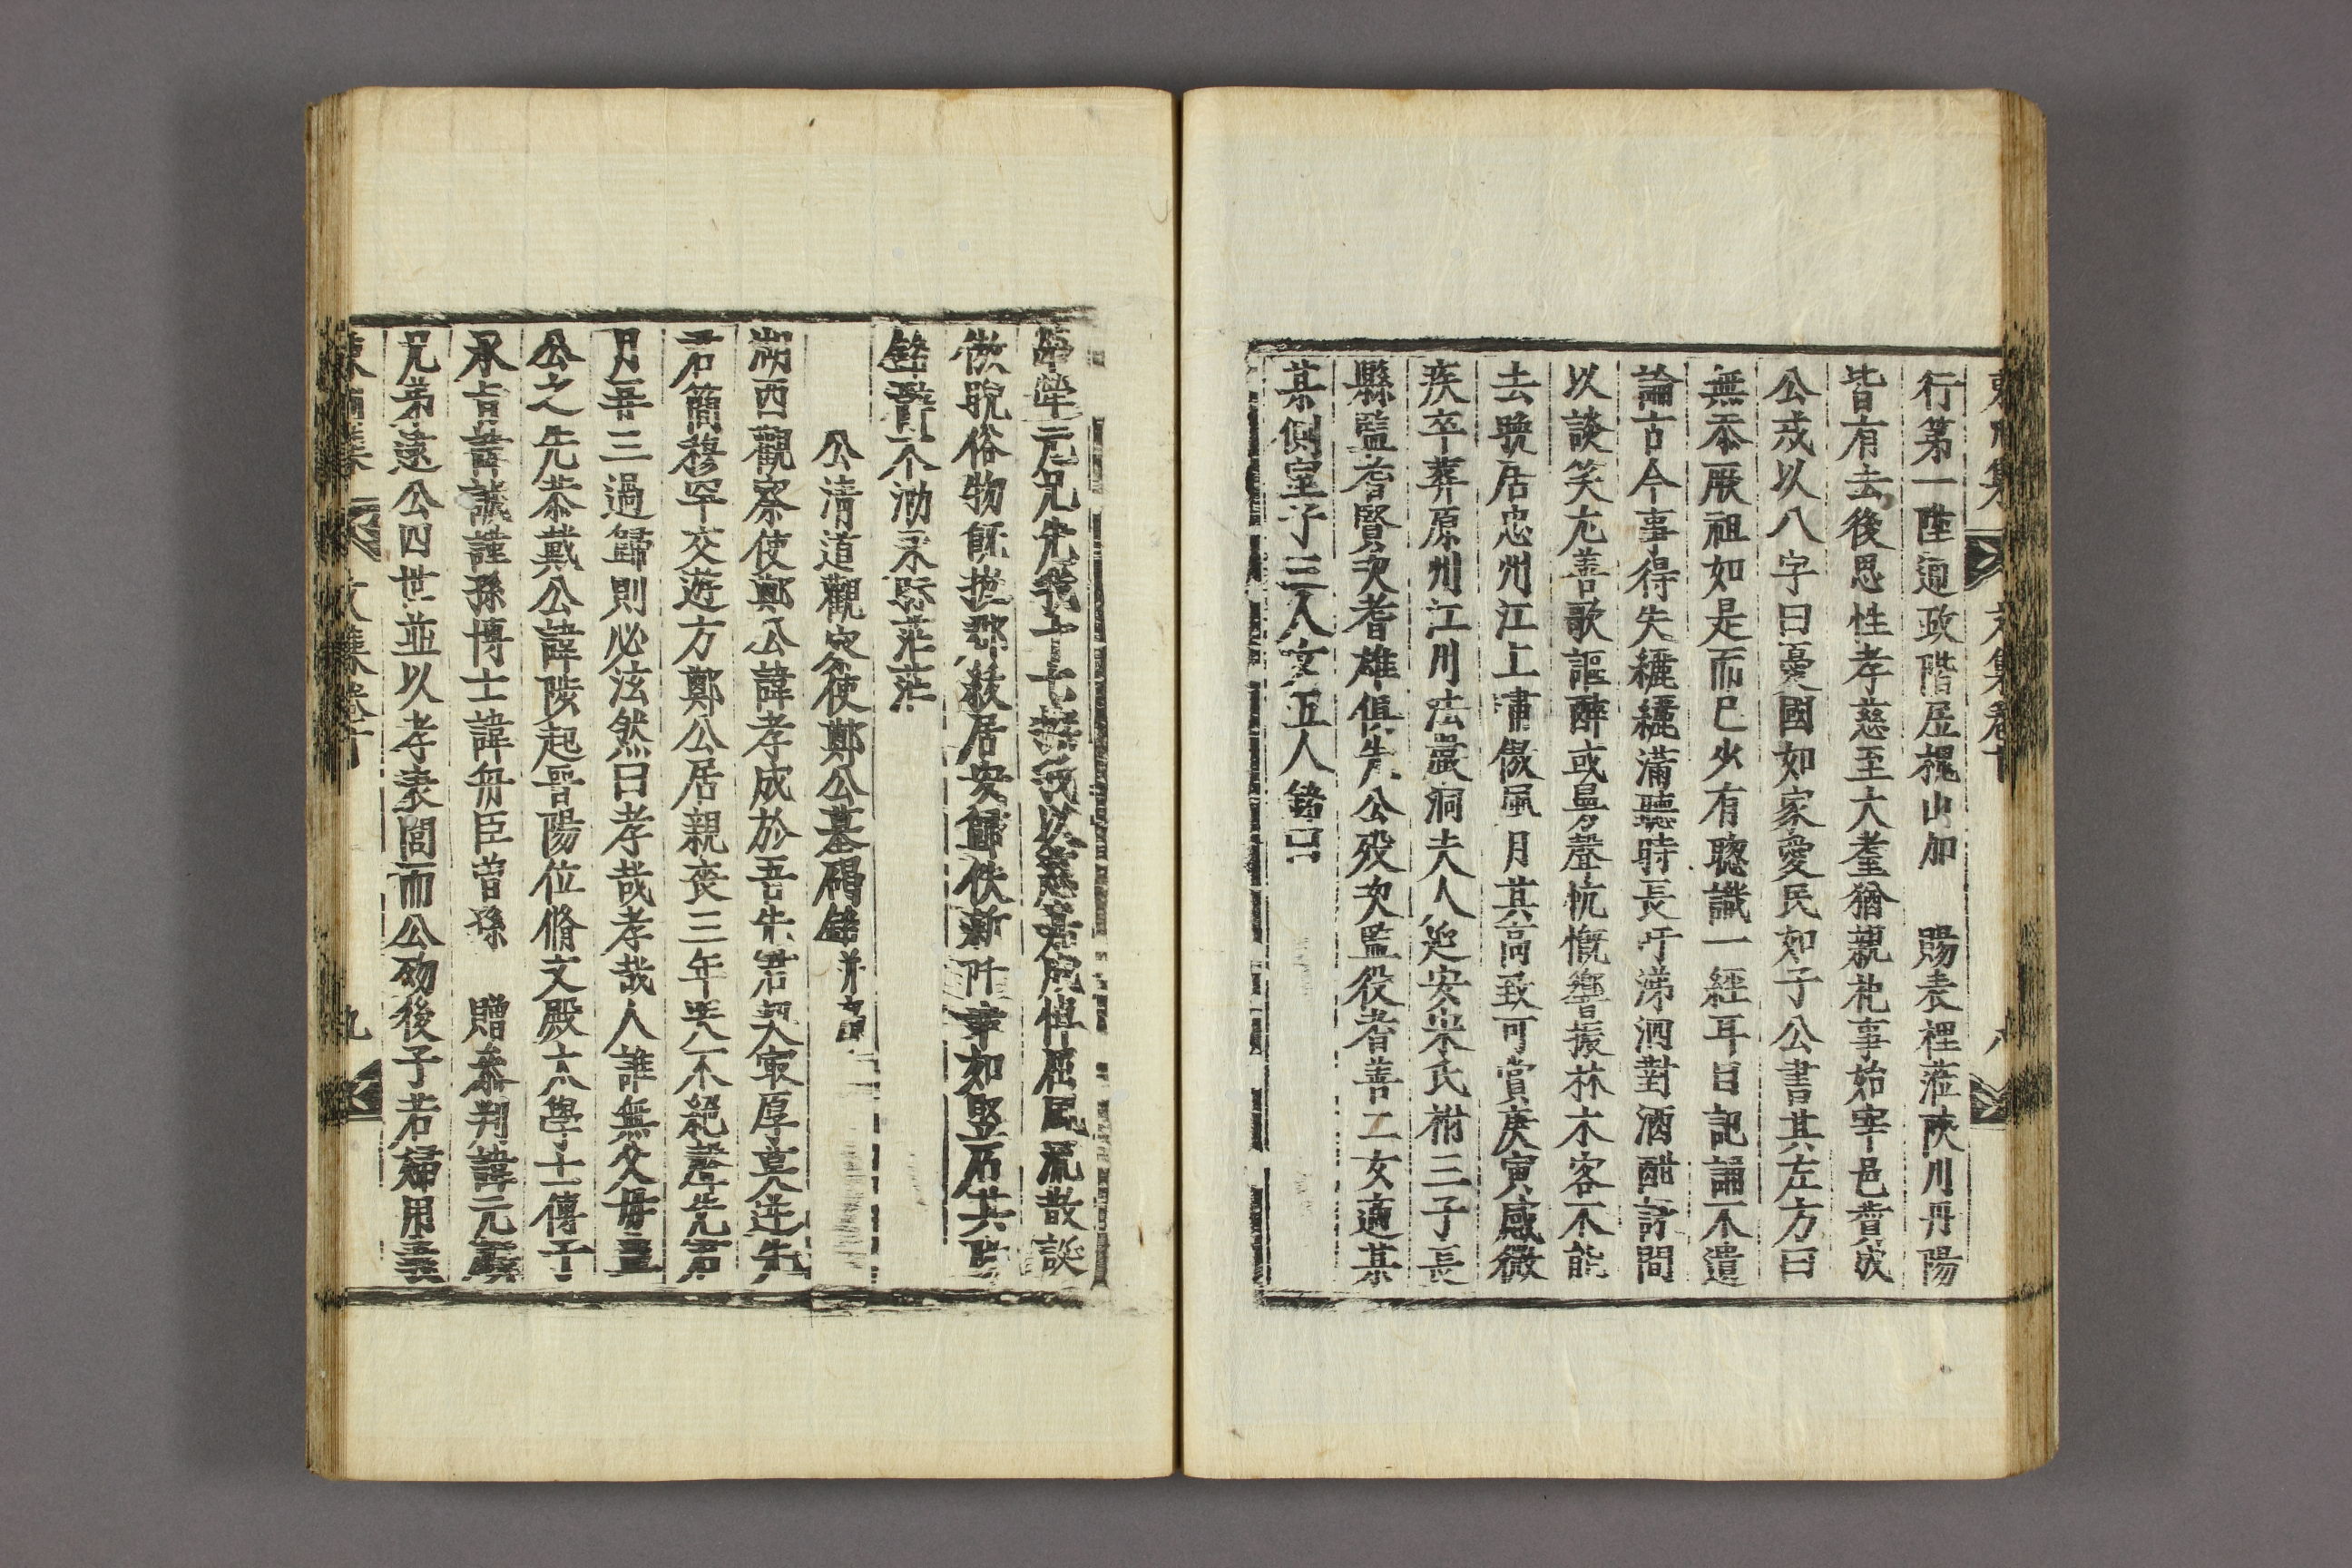 行第一陞通政階居槐山加　賜表裡莅陜川丹陽
皆有去後思性孝慈至大耋猶親祀事始宰邑耆成
公戒以八字曰憂國如家愛民如子公書其左方曰
無忝厥祖如是而已少有聰識一經耳目記誦不遺
論古今事得失纚纚滿聽時長吁涕泗對酒酣討間
以談笑尤善歌謳醉或曼聲忼慨響振林木客不能
去晩居忠州江上嘯傲風月其高致可賞庚寅感微
疾卒葬原州江川法藏洞夫人延安宋氏祔三子長
縣監耆賢次耆雄俱先公歿次監役耆善二女適某
某側室子三人女五人銘曰
元兄先我十七以悼居民風散誕
傲睨俗物居安歸佚新阡如堅石共
銘辭不泐永眎茫茫
公淸道觀察使鄭公墓碣銘幷序
湖西觀察使鄭公諱孝成於吾先君契冣厚莫逆先
君簡穆罕交遊方鄭公居親喪三年哭不絕聲先君
月吾三過歸則必泫然曰孝哉孝哉人誰無父母
公之先恭戴公諱陟起晉陽位脩文殿大學士傳子
承旨諱誠謹孫博士諱舟臣曾孫　贈參判諱元
兄弟逮公四世並以孝表閭而公幼後子若婦用
文集卷十
八
九